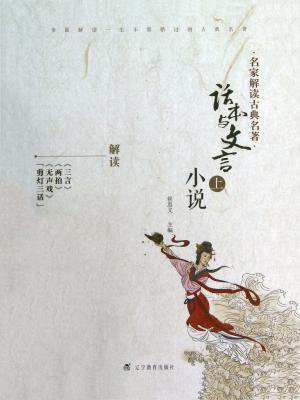 全面解读一生不能错过的古典名著
·名家解读古典名著·
话本与文言
上
小说
解读
《三言》
《两拍》
《无声戏》
「剪灯三话」
侯忠义 主编
辽宁教育出版社